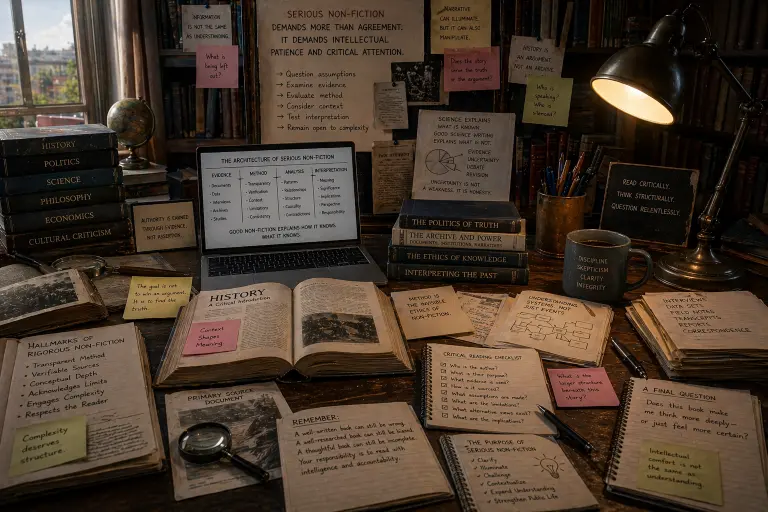 INFORMATION
IS NOT THE SAME
AS UNDERSTANDING.
What is
being left
out?
SERIOUS NON-FICTION
DEMANDS MORE THAN AGREEMENT;
IT DEMANDS INTELLECTUAL
PATIENCE AND CRITICAL ATTENTION.
→ Question assumptions
→ Examine evidence
→ Evaluate method
→ Consider context
→ Test interpretation
→ Remain open to complexity
NARRATIVE
CAN ILLUMINATE
BUT IT CAN ALSO
MANIPULATE.
Does the
story serve the truth,
or the argument?
HISTORY IS
AN ARGUMENT,
NOT AN ARCHIVE.
Who is
speaking?
Who is
silenced?
SCIENCE EXPLAINS
WHAT IS KNOWN
GOOD SCIENCE WRITING
EXPLAINS WHAT IS NOT.
EVIDENCE
UNCERTAINTY
DEBATE
REVISION
UNCERTAINTY IS NOT
A WEAKNESS. IT IS HONESTY.
READ CRITICALLY.
THINK STRUCTURALLY.
QUESTION RELENTLESSLY.
HISTORY
POLITICS
SCIENCE
PHILOSOPHY
ECONOMICS
CULTURAL CRITICISM
AUTHORITY IS EARNED
THROUGH EVIDENCE,
NOT ASSERTION.
THE ARCHITECTURE OF SERIOUS NON-FICTION
EVIDENCE METHOD ANALYSIS INTERPRETATION
GOOD NON-FICTION EXPLAINS HOW IT KNOWS
WHAT IT KNOWS.
THE POLITICS OF TRUTH
THE ARCHIVE AND POWER
THE ETHICS OF KNOWLEDGE
INTERPRETING THE PAST
DISCIPLINE
SKEPTICISM
CLARITY
INTEGRITY
The goal is not
to win an argument.
It is to find the
truth.
HISTORY
A Critical Introduction
Context
Shapes
Meaning.
METHOD IS THE
INVISIBLE ETHICS
OF NON-FICTION.
UNDERSTANDING
SYSTEMS,
NOT JUST EVENTS.
INTERVIEWS
DATA SETS
FIELD NOTES
TRANSCRIPTS
REPORTS
CORRESPONDENCE
HALLMARKS OF
RIGOROUS NON-FICTION
• Transparent Method
• Verifiable Sources
• Conceptual Depth
• Acknowledges Limits
• Engages Complexity
• Respects the Reader
Complexity
deserves
structure.
PRIMARY SOURCE
DOCUMENT
REMEMBER:
A well-written book can still be wrong.
A well-researched book can still be biased.
A thoughtful book can still be incomplete.
Your responsibility is to read with
intelligence and accountability.
CRITICAL READING CHECKLIST
Who is the author?
What is their purpose?
What evidence is used?
What assumptions are made?
What are the limitations?
What alternative views exist?
What are the implications?
What is the
larger structure
beneath this
story?
THE PURPOSE OF
SERIOUS NON-FICTION
✓ Clarify
✓ Illuminate
✓ Challenge
✓ Contextualize
✓ Expand Understanding
✓ Strengthen Public Life
A FINAL QUESTION
Does this book make
me think more deeply—
or just feel more certain?
Intellectual
comfort is not
the same as
understanding.